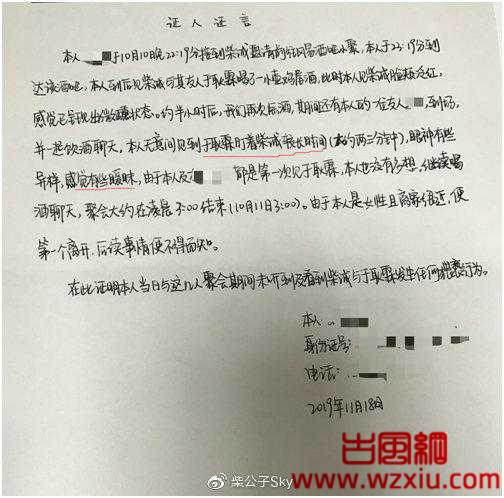 证人证言
本人 于10月10晚22:19分接到柴诚邀请前往 酒吧小聚,本人于23:19分到
达该酒吧,本人到后见柴诚与其友人于耿霖喝了一小壶鸡尾酒,此时本人见柴诚脸较泛红,
感觉已呈现出微醺状态。约半小时后,我们再次启酒,期间还有本人的一位友人 到场,
并一起饮酒聊天,本人无意间见到于耿霖盯着柴诚很长时间(大约两三分钟),眼神有些
异样,感觉有些暧昧,由于本人及 都是第一次见于耿霖,本人也没有多想,继续喝
酒聊天,聚会大约在凌晨3:00结束(10月11日3:00)。由于本人是女性且离家很近,便
第一个离开,后续事情便不得而知。
在此证明本人当日与这几人聚会期间未听到及看到柴诚与于耿霖发生任何 行为。
本人
身份证号:
电话:
2019年11月18日
柴公子Sky
出国網
www.wzxiu.com